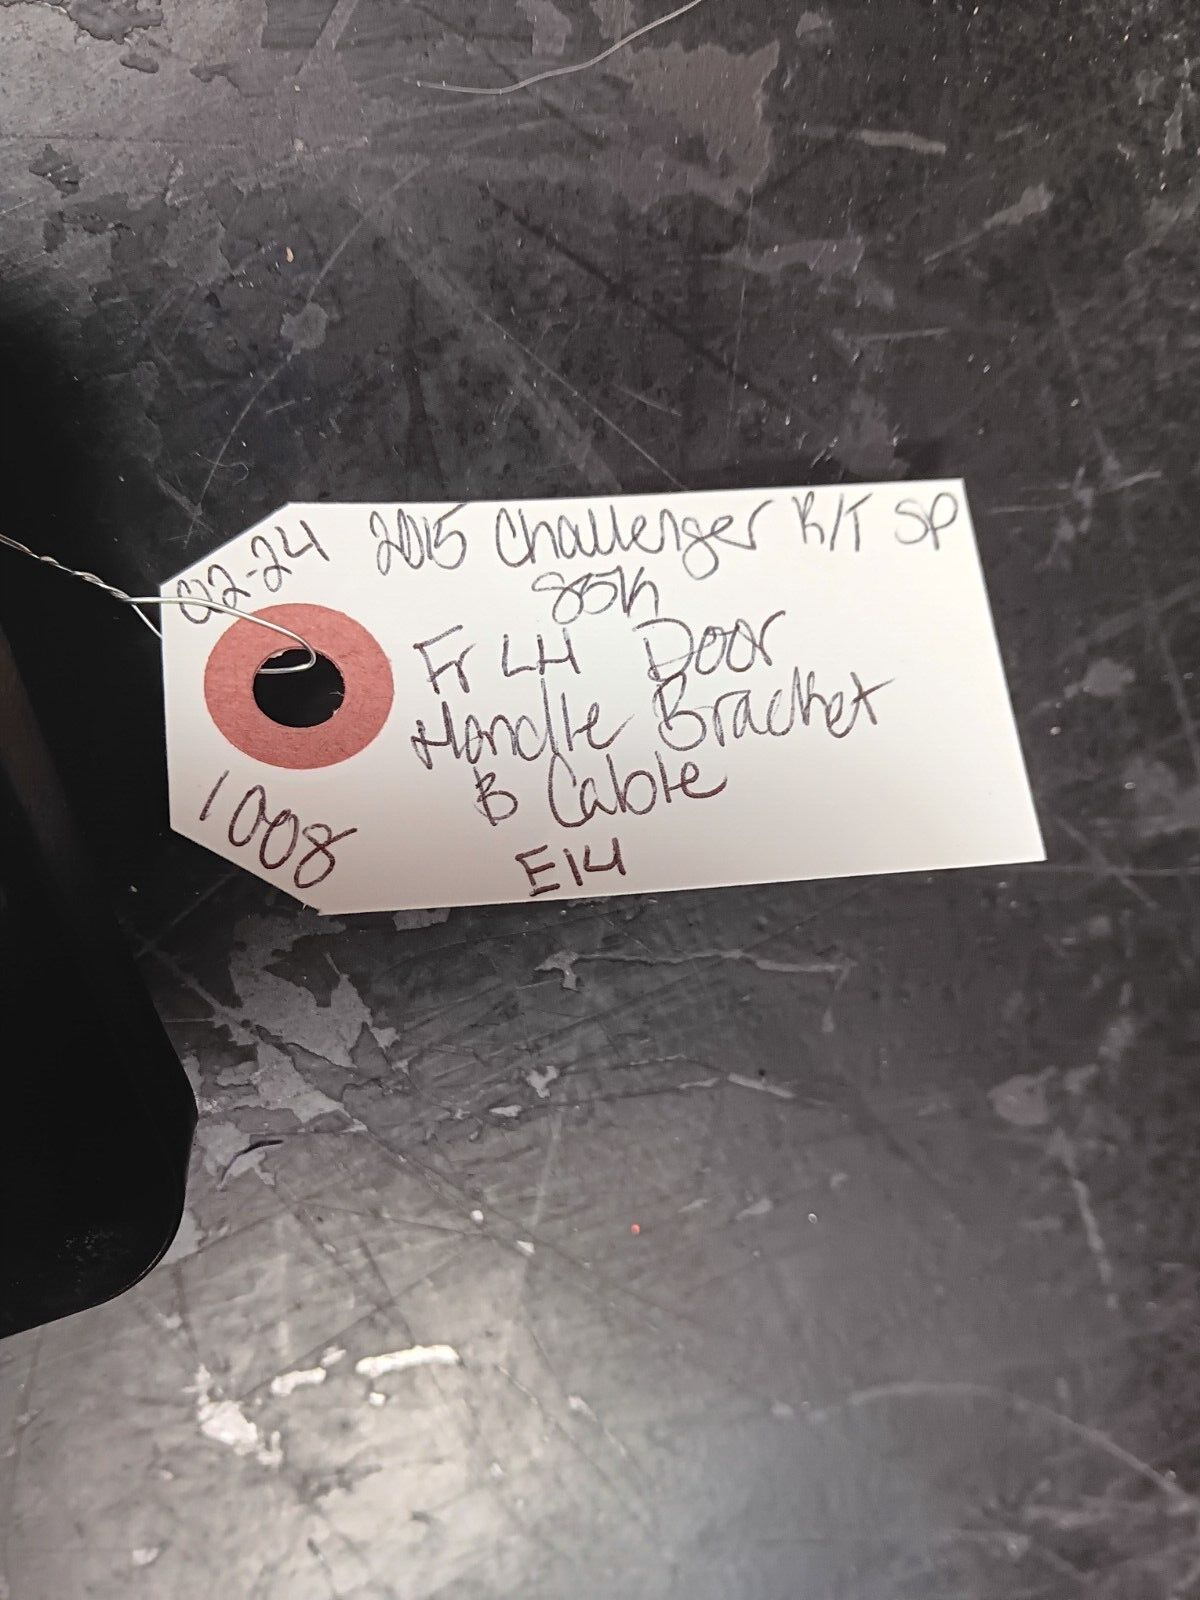 02-24 2015 Challenger R/T SP
85K
Fr LH Door
Handle Bracket
B Cable
E14
1008